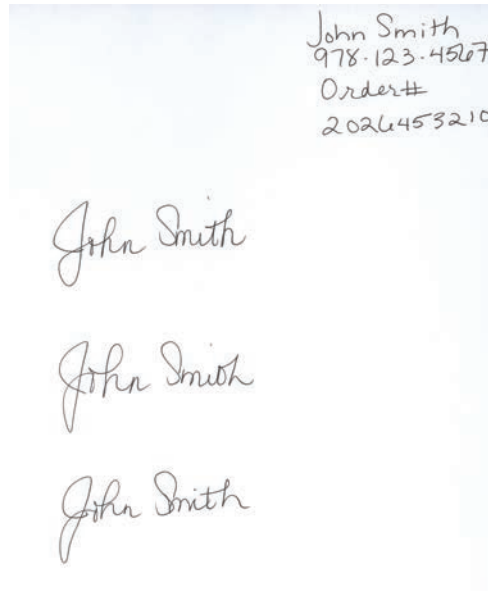 John Smith
978-123-4567
Order#
2026453210
John Smith
John Smith
John Smith